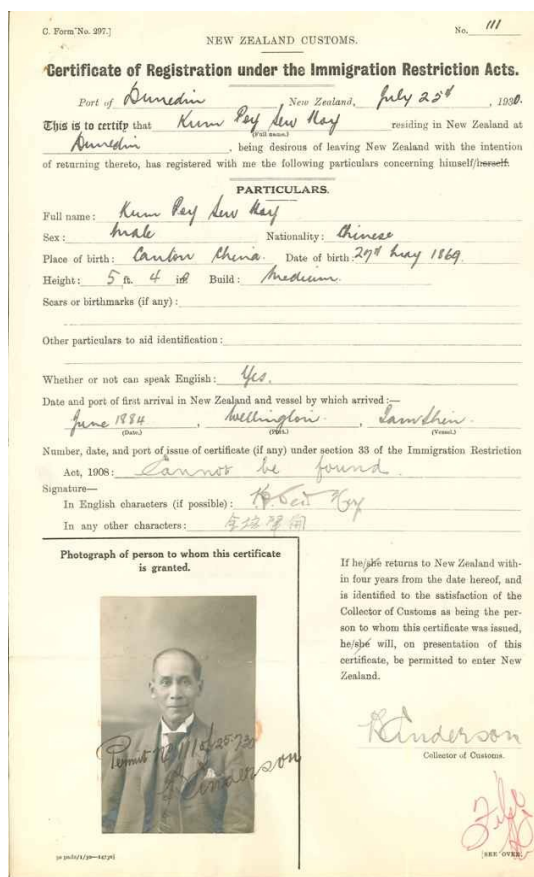 C. Form No. 297.]
No. 111
NEW ZEALAND CUSTOMS.
Certificate of Registration under the Immigration Restriction Acts.
Port of Dunedin New Zealand, July 25th, 1930.
This is to certify that Kum Poy Sew Hoy residing in New Zealand at
(Full name.)
Dunedin, being desirous of leaving New Zealand with the intention
of returning thereto, has registered with me the following particulars concerning himself/herself.
PARTICULARS.
Full name: Kum Poy Sew Hoy
Sex: Male Nationality: Chinese
Place of birth: Canton China. Date of birth: 27th May 1869.
Height: 5 ft. 4 in. Build: Medium.
Scars or birthmarks (if any):
Other particulars to aid identification:
Whether or not can speak English: Yes.
Date and port of first arrival in New Zealand and vessel by which arrived:—
June 1884, Wellington,
(Date.) (Port.) (Vessel.)
Number, date, and port of issue of certificate (if any) under section 33 of the Immigration Restriction
Act, 1908: Cannot be found.
Signature—
In English characters (if possible): Sew Hoy
In any other characters:
Photograph of person to whom this certificate
is granted.
Permit No 111 of 25-7-30
Anderson
If he/she returns to New Zealand with-
in four years from the date hereof, and
is identified to the satisfaction of the
Collector of Customs as being the per-
son to whom this certificate was issued,
he/she will, on presentation of this
certificate, be permitted to enter New
Zealand.
Anderson
Collector of Customs.
File
[SEE OVER]